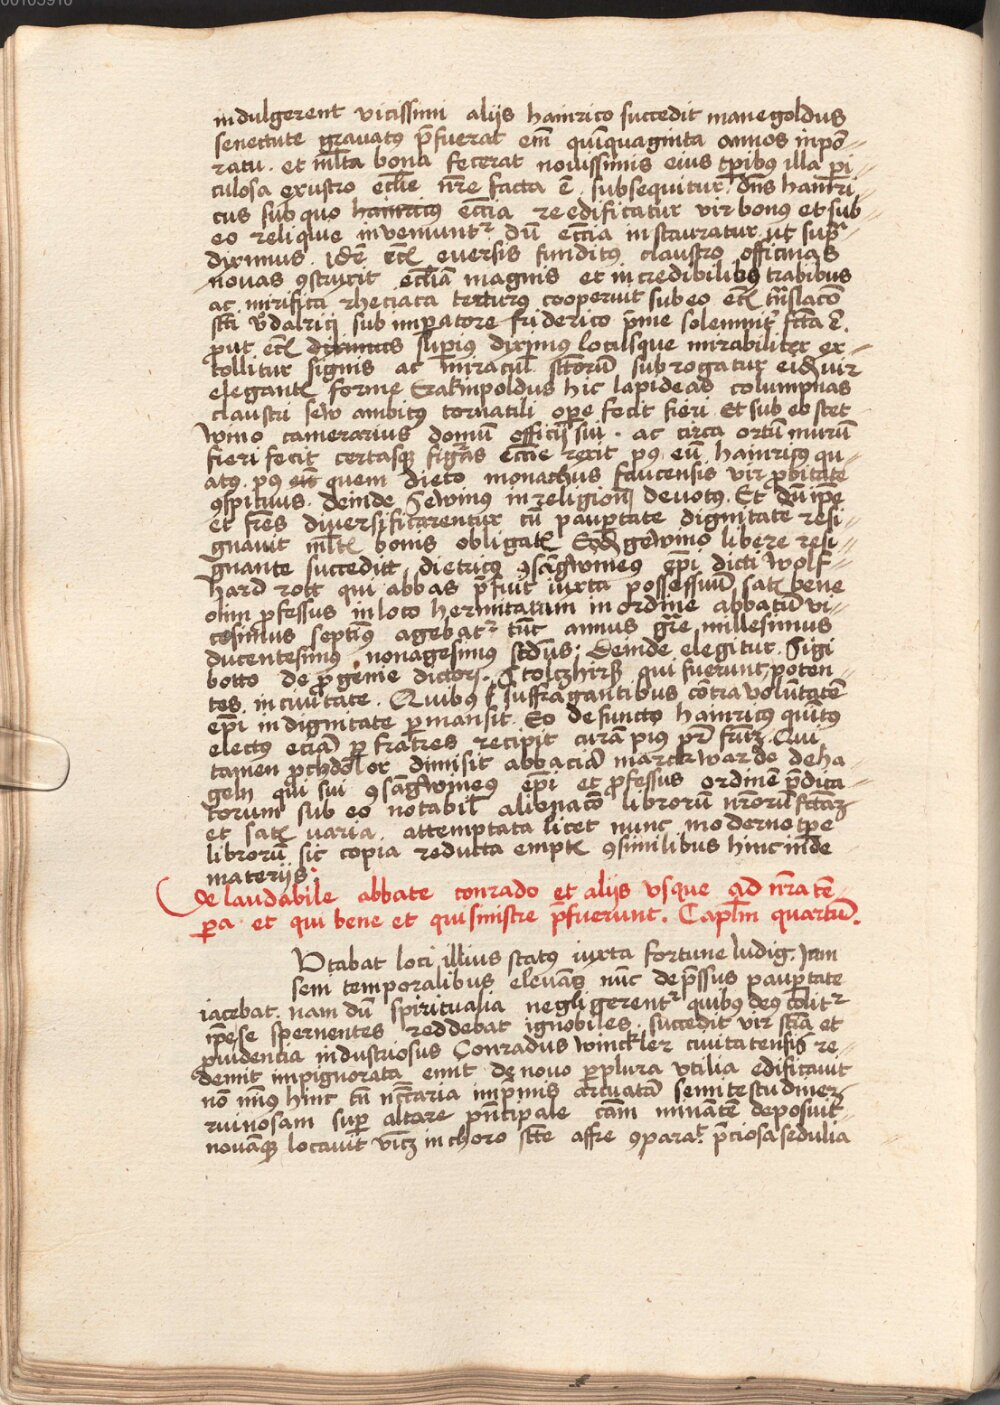 indulgerent vicissim alijs hainrico succedit manegoldus
senectute grauatꝰ p̄fuerat em̄ quīquaginta annos inpō
ratu . et ml̄ta bona fecerat nouissimis eius tp̄ibus illa pi
culosa exustio ecclīe nr̄e facta ē . subsequitur dn̄s hainri
cus sub quo hainricus ecclīa reedificatur vir bonꝰ et sub
eo reliquie inveniunt᷑ dū ecclīa instauratur ut supᵃ
diximus . idē ecī euersis funditꝰ claustro officinas
nouas ꝯstruxit ecclīā magnis et incredibilibꝰ trabibus
ac mirifica rheciaca cooperuit sub eo ecī trn̄slacō
scī vͦdalrici sub imperatore friderico p̄me solemnit᷑ fcā ē .
put ecī diximus supius diximus localsque mirabiliter ex
tollitur signis ac miracul̄ scōrū subrogatur eid̄ vir
elegantī forme Erkinpoldus hic lapideas columpnas
claustri sew ambitꝰ tornatili oꝑe fecit fieri . Et sub eo stet
wino camerarius domū officij sui . ac circa ortū murū
fieri fecit certasqꝫ figᵃs ecclīe rexit pꝰ eū hainricꝰ qu
atꝰ . pꝰ quem dieto monachus faucensis vir ꝓbitate
ꝯspicuus . deinde Gewinus in religionē deuotꝰ . Et dū ip̄e
et fr̄es diuersificarentur cū pauꝑtate dignitatē resi
gnauit ml̄tī bonis obligatī gewino libere resi
gnante succedit dietricꝰ ꝯsāgwineꝰ ep̄i dicti wolf
hard rott qui abbas p̄fuit iuxta possessiuū satī bene
olim ꝓfessus in loco hermitarum in ordine abbatū vi
cesimus septimꝰ agebat᷑ tūc annus gr̄e millesimus
ducentesimus . nonagesimus scd̄us . deinde elegitur . Sigi
botto de ꝓgenie dictorum Stolczhirß qui fuerunt poten
tes in ciuitate . Quibus suffragantibus contra voluntatē
ep̄i in dignitate ꝑmansit . Eo defuncto hainricꝰ quītꝰ
electus eciā ꝑ fratres recipit curā pius pr̄ fr̄m . Qui
tamen ꝓchdolor dimisit abbaciā marckwardo de ha
geln qui fui ꝯsāgwineus ep̄i et ꝓfessus ordinē p̄dica
torum sub eo notabil̄ alienacō librorū nr̄orū fcā
et satī varia . attemptata licet nunc moderno tp̄e
librorū sic copia reducta emptī ꝯsimilibus hincinde
materijs .
De laudabile abbate conrado et alijs vsque ad nr̄a tē
ꝑa et qui bene et qui sinistre p̄fuerunt . Capl̄m quartū .
Vtabat loci illius status iuxta fortune ludig . Jam
sem temporalibus eleuās nūc dep̄ssus pauꝑtate
iacebat . nam dū spiritualia negligerent᷑ quibꝰ deꝰ colit᷑
ip̄e se spernentes reddebat ignobiles . succedit vir scīa et
ꝓuidencia industriosus Conradus winckler ciuitatensis re
demit impignorata emit de nouo ꝑplura vtilia edificauit
nō minꝰ hinc cū nc̄c̄aria inp̄mis arcuatā semitestudinez
ruinosam sup altare prn̄cipale casum minātē deposuit
nouāqꝫ locauit vicꝫ in choro scē affre ꝯparat᷑ p̄ciosa sedulia